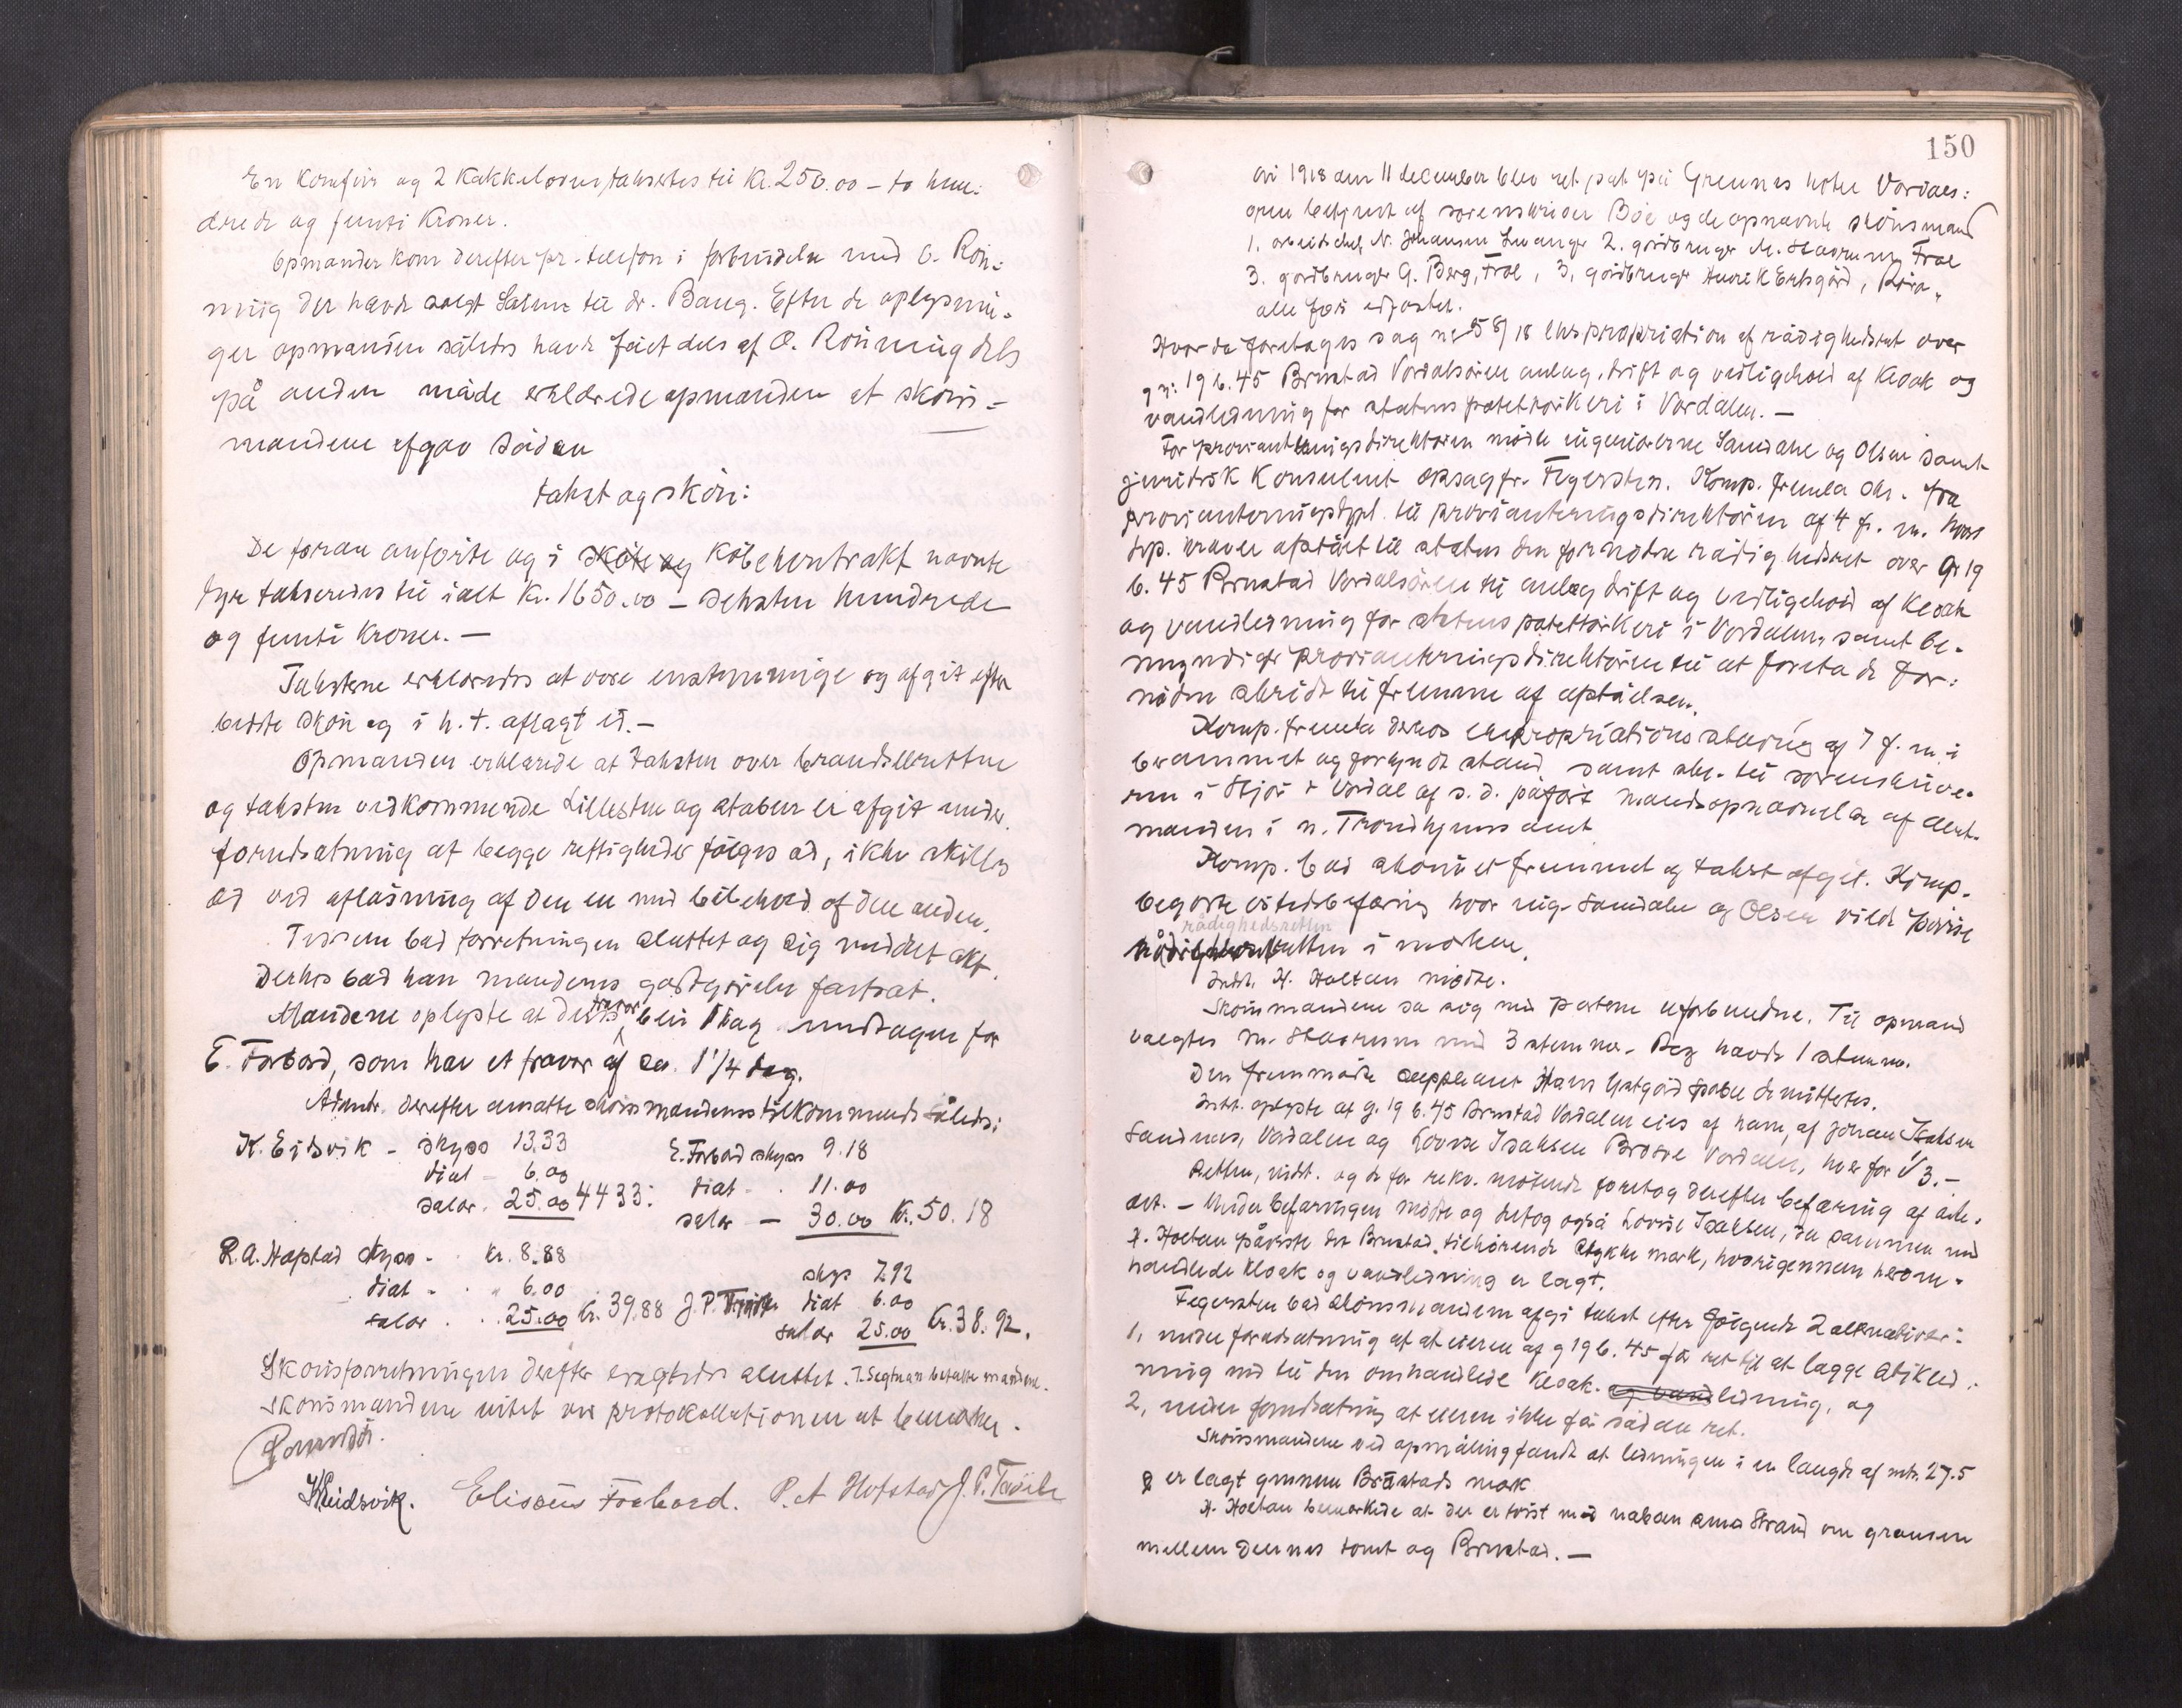 En Komfur og 2 Kakkelovner taksertes til Kr. 250.00 - to hun:
drede og femti Kroner.
Opmanden kom derefter pr. telefon i forbindelse med O. Rön:
ning der havde solgt Salen til dr. Baug. Efter de oplysnin-
ger opmanden således havde fået dels af O. Rönning dels
på anden måde erklærede opmanden at skjöns-
mandene afgav sådan
takst og skjön:
De foran anförte og i Köbekontrakt nævnte
takseredes til ialt Kr. 1650.00 - seksten hundrede
og femti Kroner. -
Taksterne erklæredes at være enstemmige og afgit efter
bedste skjön og i h. t. aflagt ed. -
Opmanden erklærede at taksten over brændselsretten
og taksten vedkommende Lillestuen og stabur er afgit under
forudsætning at begge rettigheder fölges ad, ikke skilles
ad ved aflösning af den en med bibehold af den anden.
Tessem bad forretningen sluttet og sig meddelt akt.
Derhos bad han mandenes godtgörelse fastsat.
Mandene oplyste at deres fravær blir 1 dag undtagen for
E. Forbord, som har et fravær af ca. 1 1/4 dag.
Admstr. derefter ansatte skjönsmandenes tilkommende således:
K. Eidsvik - skyss 13.33 E. Forbord skyss 9.18
diæt - 6.00 diæt - 11.00
salær. 25.00 44 33: salær - 30.00 Kr. 50.18
R. A. Hofstad skyss - Kr. 8.88 skys 7.92
diæt - 6.00 J. P. diæt 6.00
salær . . 25.00 Kr. 39.88 salær 25.00 Kr. 38.92.
Skjönsforretningen derefter sluttet. T. Segtnan betalte mandene.
Skjönsmandene intet ved protokollationen at bemærke.
K. Eidsvik. Elisæus Forbord. P. A Hofstad J. P.
150
År 1918 den 11 december blev ret sat på Grennes hotel Værdals:
ören betjent af sorenskriver Böe og de opnævnte skönsmænd
1. arbeidschef N. Johansen Levanger 2. gårdbruger M. Stavrum Frol
3. gårdbruger G. Berg, Frol, 3. gårdbruger Henrik , Röra,
alle för edfæstet.
Hvor da foretages sag nr 58/18 Ekspropriation af rådighedsret over
g nr. 19 b. 45 Brustad Værdalsören anlæg, drift og vedligehold af Kloak og
vandledning for statens potettörkeri i Værdalen. -
For provianteringsdirektören mödte ingeniörerne Sandahl og Olsen samt
juridisk Konsulent oksagfr. Fegersten. Komp. fremla skr. fra
provianteringsdept. til provianteringsdirektören af 4 f. m. hvor
dep. kræver afstået til staten den fornödne rådighedsret over Gr 19
b. 45 Brustad Værdalsören til anlæg drift og vedligehold af Kloak
og vandledning for statens potettörkeri i Værdalen, samt be-
myndiger provianteringsdirektören til at foreta de for:
nödne skridt til fremme af afståelsen.
Komp. fremla derhos ekspropriationsstevning af 7 f. m. i
berammet og forkyndt stand samt skr. til sorenskrive-
ren i Stjör & Værdal af s. d. påfört mandsopnævnelse af amt-
manden i n. Trondhjems amt
Komp. bad skönnet fremmet og takst afgit. Komp.
begjærte åstedsbefaring hvor ing. Sandahl og Olsen vilde påvise
rådighedsretten
i marken.
Indst. H. Holtan mödte.
Skönsmandene sa sig med parterne uforbundne. Til opmand
valgtes M. Stavrum med 3 stemmer. Berg havde 1 stemme.
Den fremmödte suppleant Hans demittertes.
Indst. oplyste at g. 19 b. 45 Brustad Værdalen eies af ham, af Johan Isaksen
Sandnes, Værdalen og Lovise Isaksen Værdalen, hver for 1/3. -
Retten, indst. og de for rekv. mötende foretog derefter befaring af åste-
det. - Under befaringen mödte og deltog også Lovise Isaksen, der sammen med
H. Holtan påviste det Brustad tilhörende stykke mark, hvorigennem her om-
handlede Kloak og vandledning er lagt.
Fegersten bad skönsmandene afgi takst efter fölgende 2 alternativer:
1, under forudsætning af at eieren af g 19 b. 45 får ret til at lægge stikled:
ning ned til den omhandlede Kloak. og vandledning, og
2, under forudsætning at eieren ikke får sådan ret.
Skönsmandene ved opmåling fandt at ledningen i en længde af mtr. 27.5
er lagt gennem Brustads mark
H. Holtan bemærkede at der er tvist med naboen Anna Strand om grænsen
mellem dennes tomt og Brustad. -